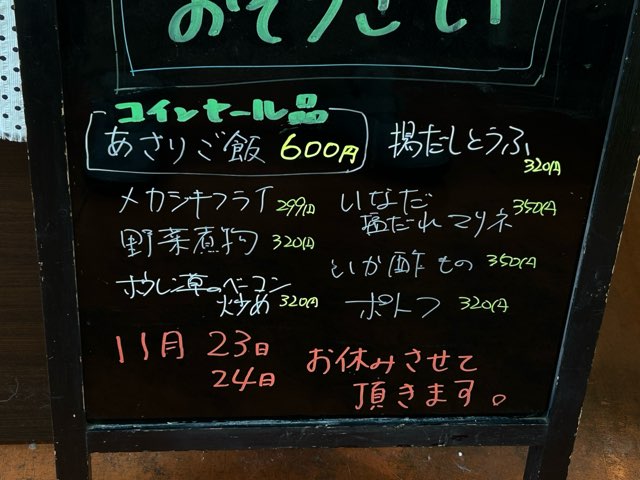 おそうざい
コインセール品
あさりご飯 600円
揚だしとうふ
320円
メカジキフライ 299円
野菜煮物 320円
ほうれん草のベーコン
炒め 320円
いなだ 350円
塩だれマリネ
いか酢もの 350円
ポトフ 320円
11月 23日
24日
お休みさせて
頂きます。